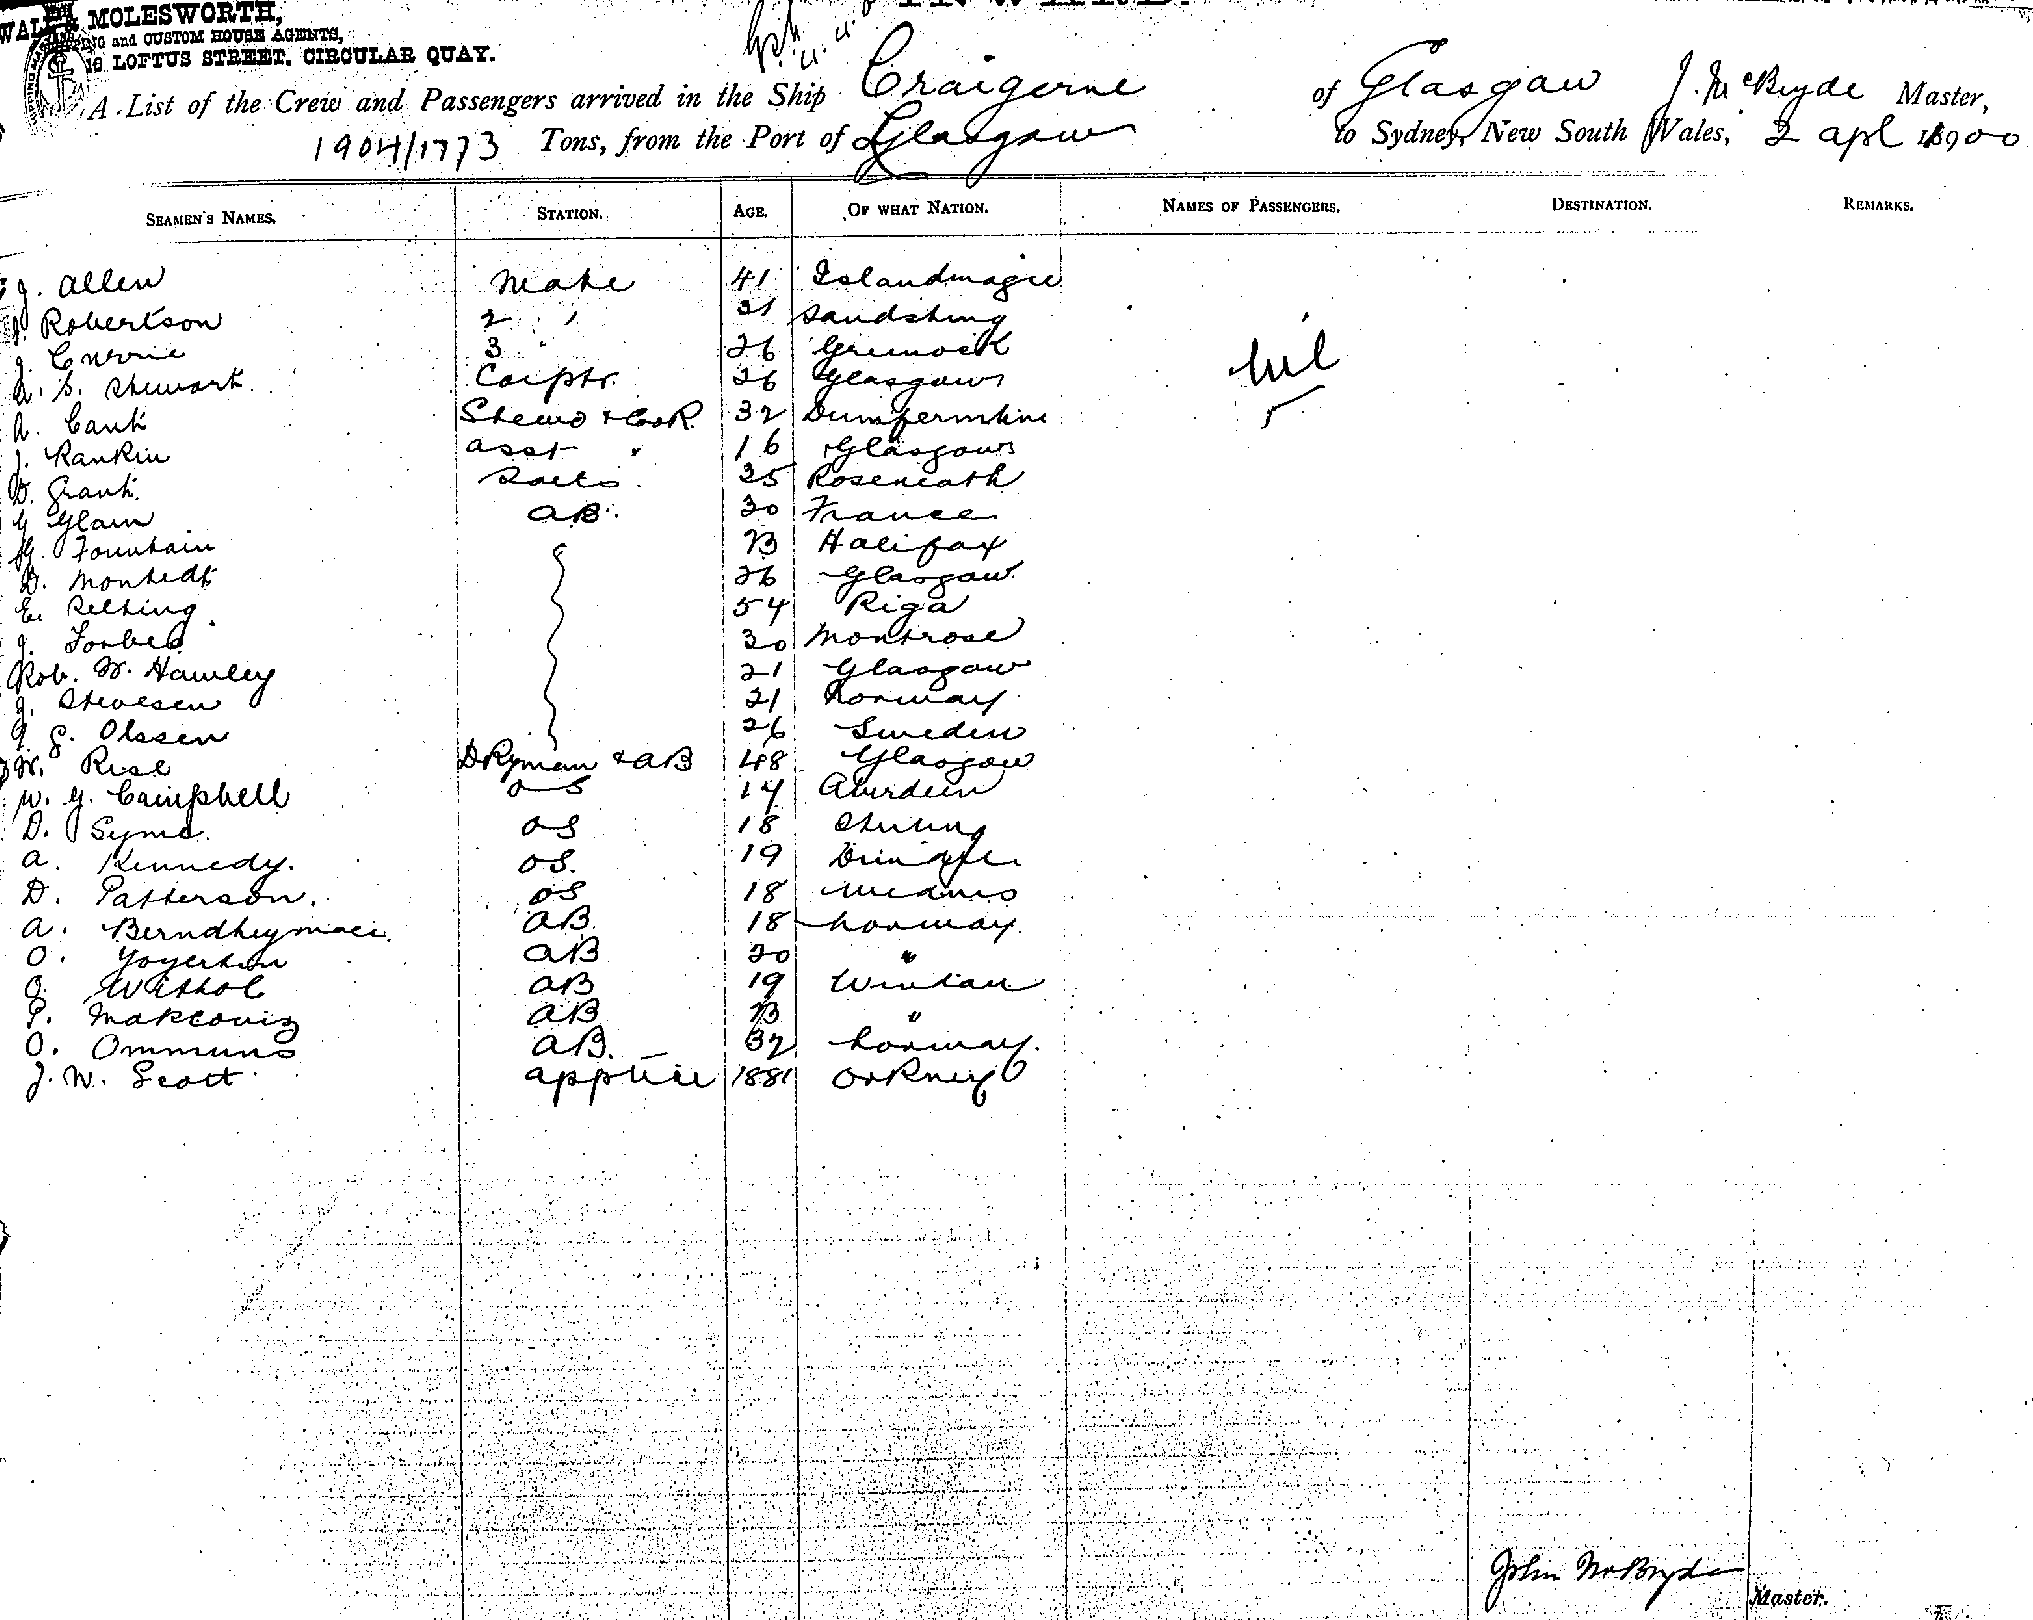 MOLESWORTH,
and CUSTOM HOUSE AGENTS,
LOFTUS STREET. CIRCULAR QUAY.
A List of the Crew and Passengers arrived in the Ship Craigerne of Glasgow J. McBryde Master,
1904/1773 Tons, from the Port of Glasgow to Sydney, New South Wales, 2 apl 1900
SEAMEN'S NAMES. STATION. AGE. OF WHAT NATION. NAMES OF PASSENGERS. DESTINATION. REMARKS.
J. Allen Mate 41 Islandmagee
Robertson 2 " 31 Sandsting
J. Currie 3 " 26 Greenock
Stewart Carptr. 26 Glasgow
nil
A. Cant Stewd & Cook 32 Dumfermline
J. Rankin asst " 16 Glasgow
D. Grant Sails 35 Roseneath
Glain AB. 30 France
Fountain 23 Halifax
D. 26 Glasgow
E. Relting 54 Riga
J. Forbes 30 Montrose
Rob. W. Hawley 21 Glasgow
J. Stevesen 21 Norway
Olssen 26 Sweden
W. DKyman & AB 48 Glasgow
W. G. Campbell OS 17 Aberdeen
D. Syme OS 18 Stirling
A. Kennedy. OS. 19
D. Patterson. OS 18
A. AB 18 Norway
O. AB 20 "
O. AB 19 Windau
P. AB 23 "
O. Ommuns AB. 32 Norway.
J. W. Scott apptice 1881 Orkney
John McBryde
Master.